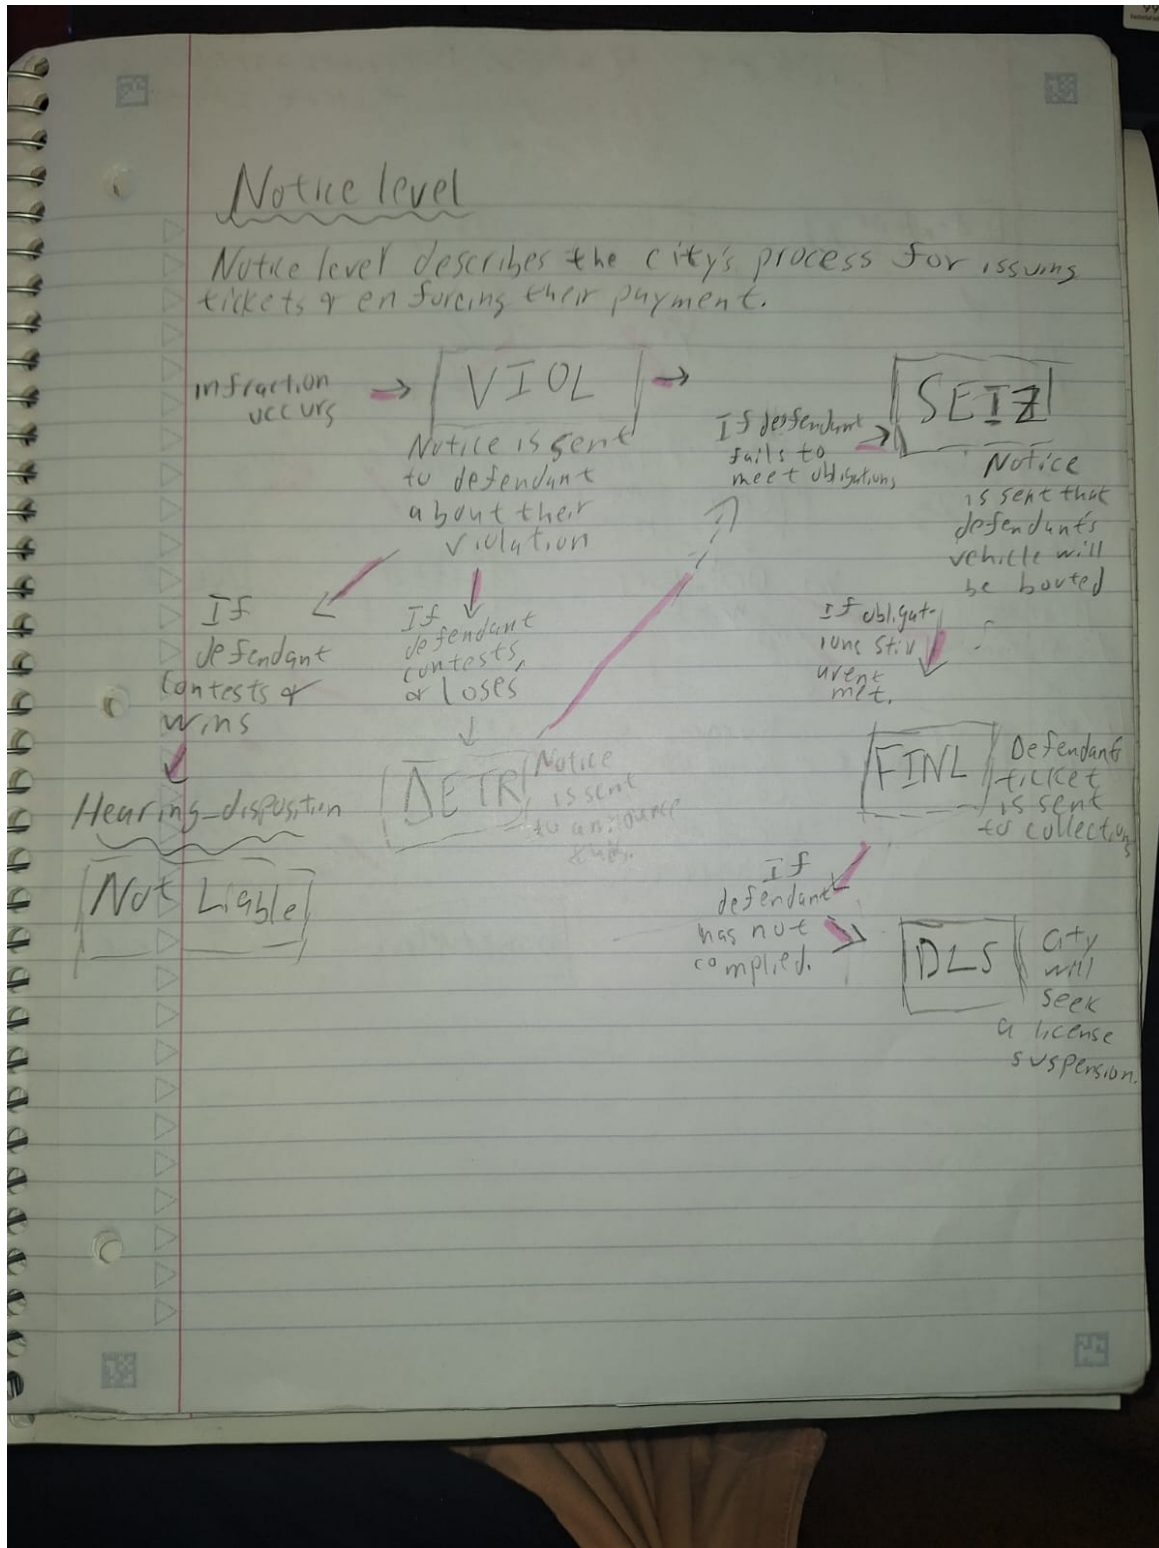 Notice level
Notice level describes the city's process for issuing
tickets & enforcing their payment.
infraction
occurs
VIOL
Notice is sent
to defendant
about their
violation
If defendant
fails to
meet obligations
SEIZ
Notice
is sent that
defendant's
vehicle will
be booted
If
defendant
contests &
wins
Hearing_disposition
Not Liable
If
defendant
contests,
or loses
DETR
Notice
is sent
to announce
If obligat-
ions still
arent
met.
FINL
Defendants
ticket
is sent
to collections
If
defendant
has not
complied.
DLS
City
will
seek
a license
suspension.